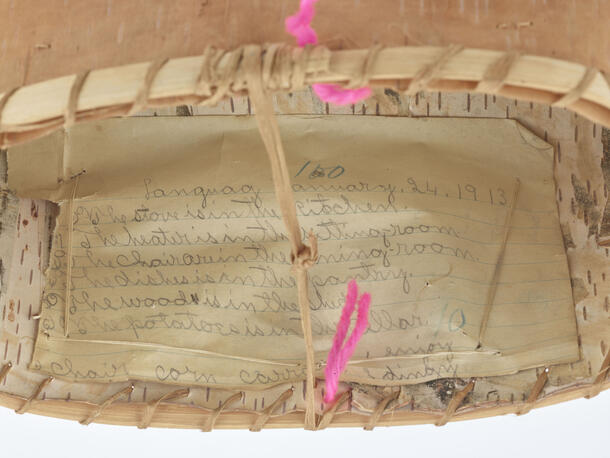 150
Languag January. 24. 1913
The stove is in the kitchen
The heater is in the sittingroom.
The chair are in the diningroom.
The dishes is in the pantry.
The wood is in the shed
The potatoes is in the cellar
10
chair corn carri dining